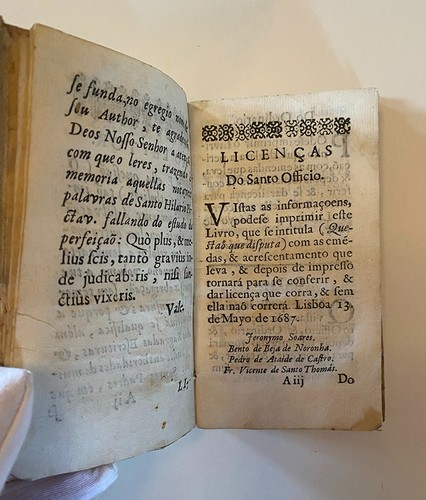 se funda, no egregio
seu Author, te
Deos Nosso Senhor a
com que o leres,
memoria aquellas
palavras de Santo Hilario
ctav. fallando do estudo da
perfeiçaõ: Quò plus, & me-
lius scis, tantò gravius in-
de judicaberis, nisi san-
ctiùs vixeris.
Vale.
LI-
A ij
LICENÇAS
Do Santo Officio.
VIstas as informaçoens,
podese imprimir este
Livro, que se intitula (Ques-
taõ que disputa) com as emẽ-
das, & acrescentamento que
leva, & depois de impresso
tornará para se conferir, &
dar licença que corra, & sem
ella naõ correrá. Lisboa 13.
de Mayo de 1687.
Jeronymo Soares.
Bento de Beja de Noronha.
Pedro de Ataide de Castro.
Fr. Vicente de Santo Thomás.
A iij Do